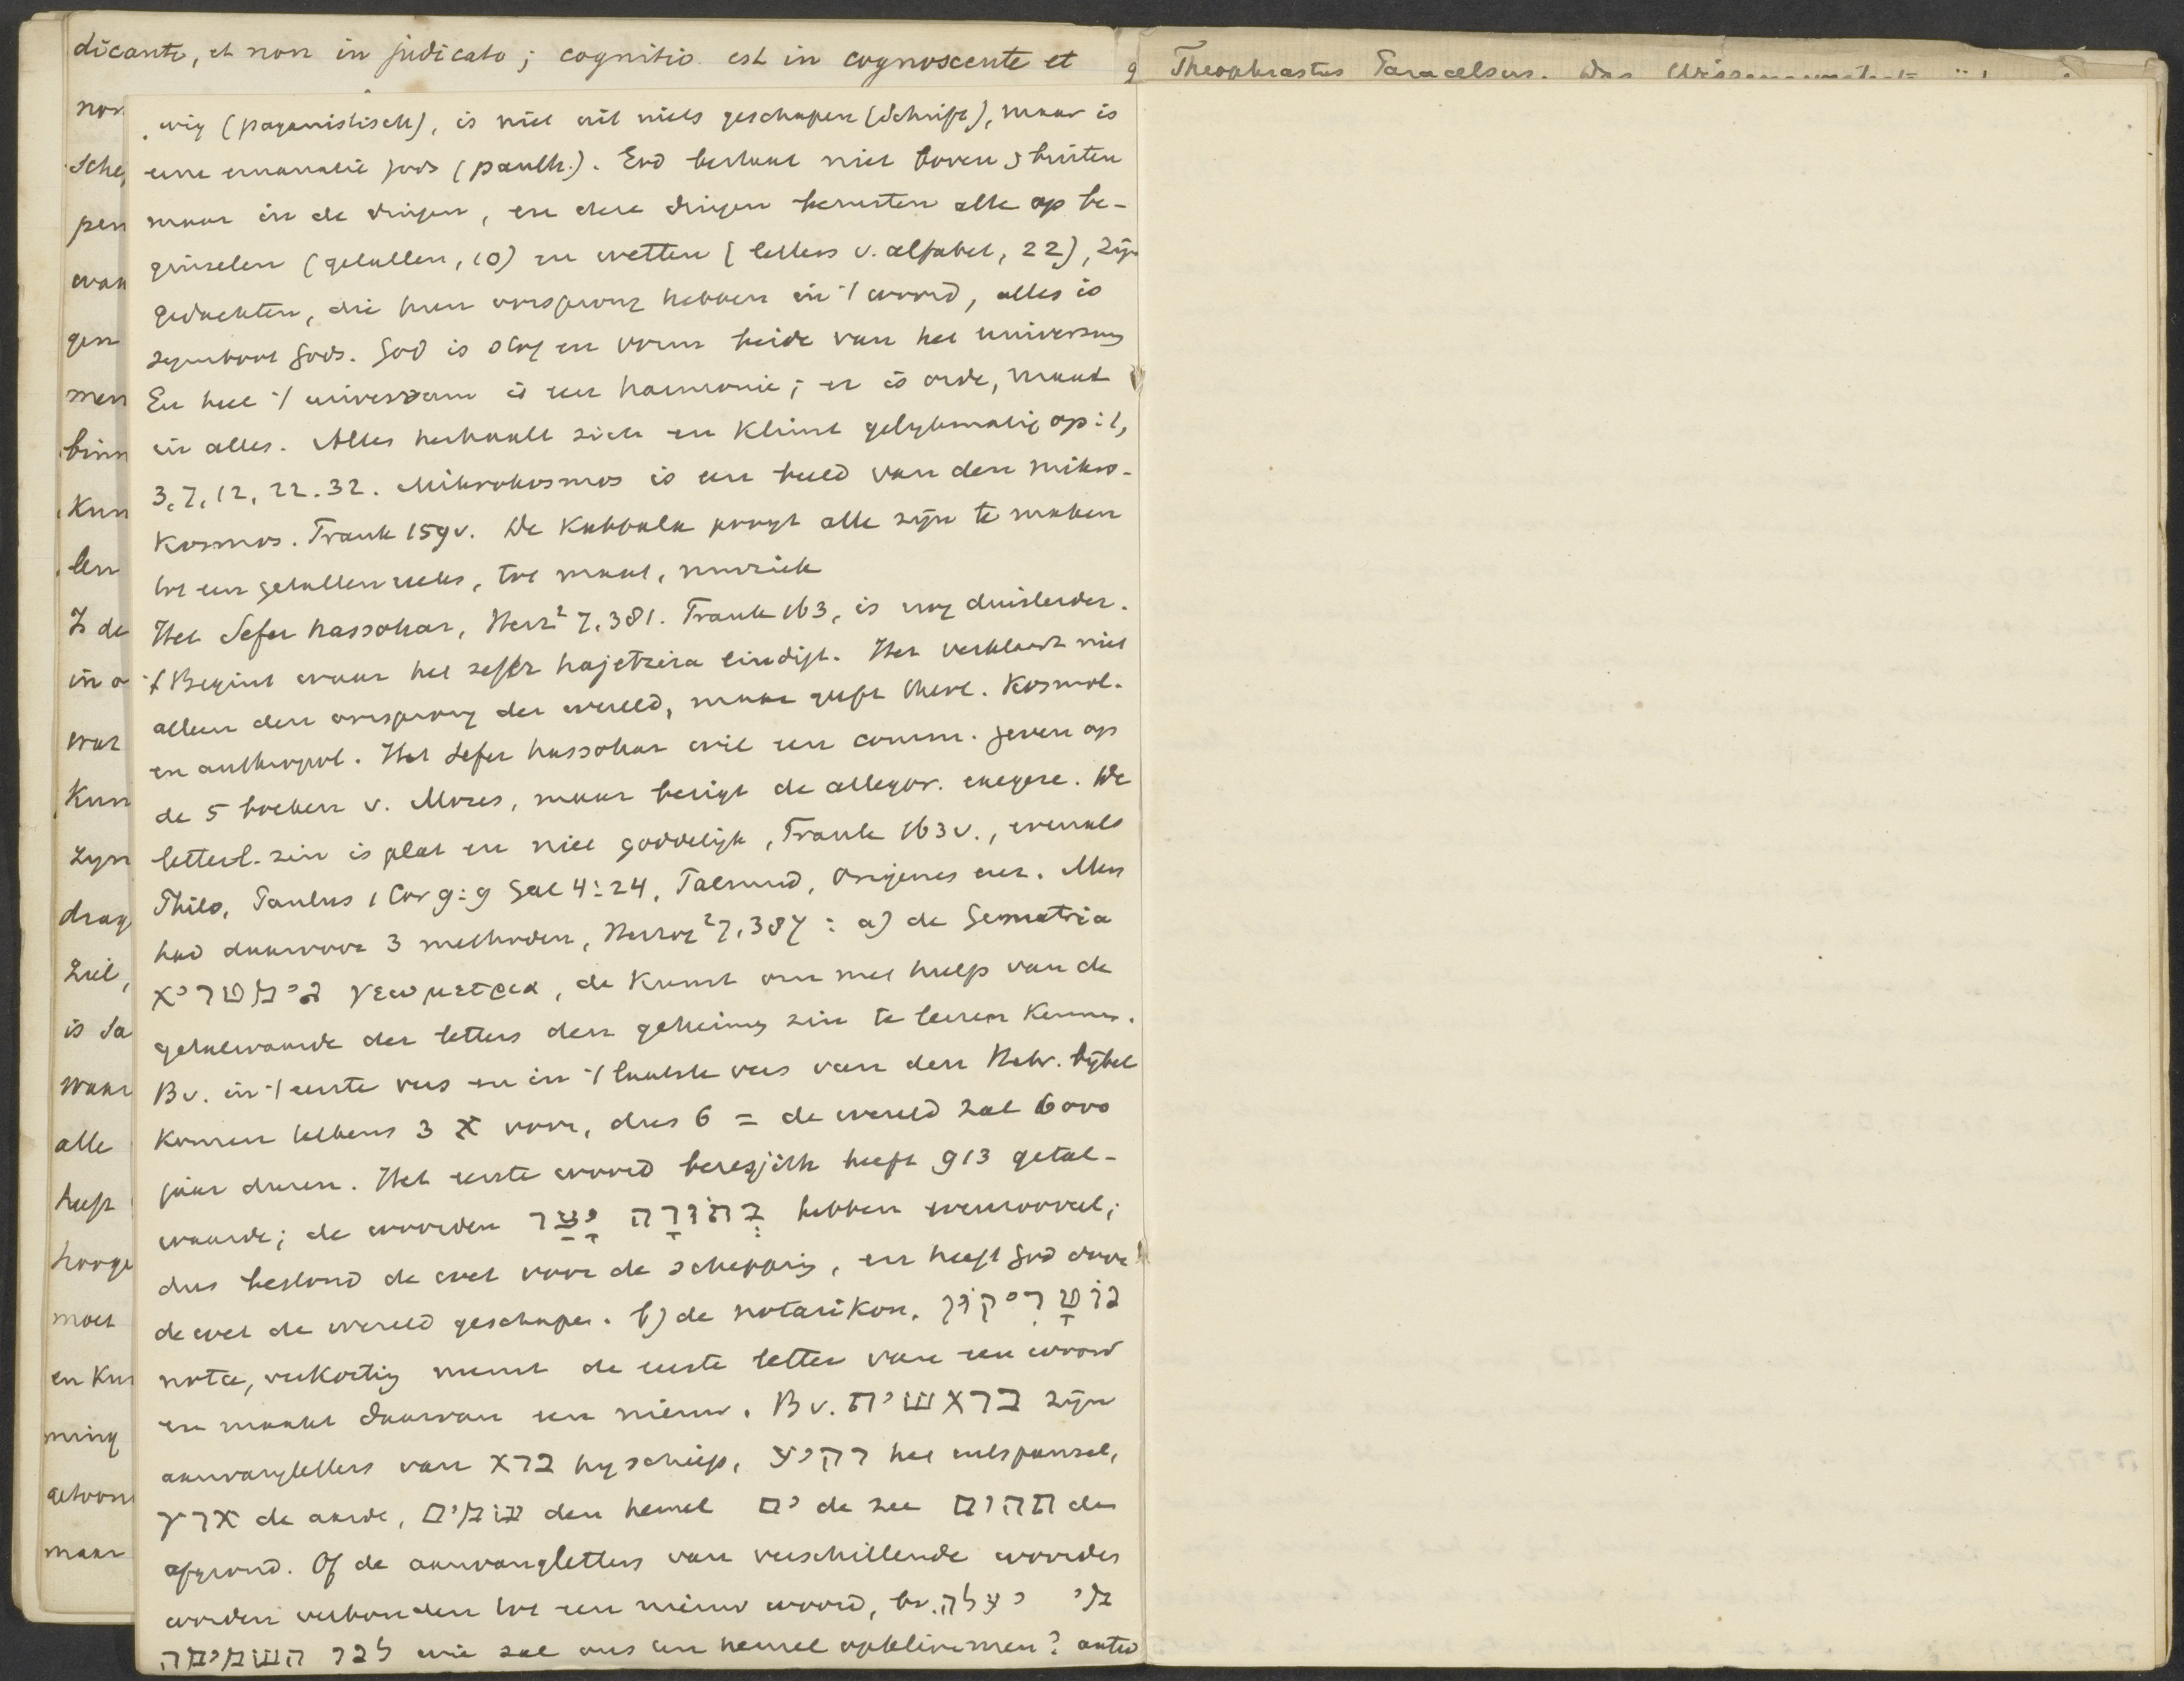 dicante, et non in judicato; cognitio est in cognoscente et
g Theophrastus Paracelsus. Das
non
Sche,
pen
waa
gen
men
binn
Kun
len
Is de
in a
war
Kun
zyn
drag
Ziel,
is Sa
waar
alle
heeft
hooge
moet
en Kun
ming
gehoor
maar
ewig (paganistisch), is niet uit niets geschapen (Schrift), maar is
eene emanatie Gods (panth.). God bestaat niet boven & buiten
maar in de dingen, en deze dingen berusten alle op be-
ginselen (getallen, 10) en wetten (letters v. alfabet, 22), zijn
gedachten, die hun oorsprong hebben in 't woord, alles is
symbool Gods. God is stof en vorm beide van het universum
En heel 't universum is een harmonie; er is orde, maat
in alles. Alles herhaalt zich en klimt gelykmatig op: 1,
3, 7, 12, 22. 32. Mikrokosmos is een beeld van den mikro-
kosmos. Frank 159v. De Kabbala poogt alle zijn te maken
tot een getallenreeks, tot maat, muziek
Het Sefer hassohar, Herz² 7,381. Frank 163, is nog duisterder.
't Begint waar het sefer hajetzira eindigt. Het verklaart niet
alleen den oorsprong der wereld, maar geeft theol. Kosmol.
en anthropol. Het Sefer hassohar wil een comm. geven op
de 5 boeken v. Mozes, maar bezigt de allegor. exegese. De
letterl. zin is plat en niet goddelijk, Frank 163v., evenals
Philo, Paulus 1 Cor 9:9 Gal 4:24, Talmud, Origenes enz. Men
had daarvoor 3 methoden, Herzog² 7,387: a) de Gematria
גימטריא γεωμετρια, de Kunst om met hulp van de
getalwaarde der letters den geheimen zin te leeren Kennen.
Bv. in 't eerste vers en in 't laatste vers van den Hebr. bijbel
Komen telkens 3 א voor, dus 6 = de wereld zal 6000
jaar duren. Het eerste woord beresjith heeft 913 getal-
waarde; de woorden בְּתוֹרָה יָצַר hebben evenzooveel;
dus bestond de wet voor de schepping, en heeft God door
de wet de wereld geschapen. b) de notarikon, נוֹטָרִיקוֹן
nota, verkorting neemt de eerste letter van een woord
en maakt daarvan een nieuw. Bv. בראשית zijn
aanvangletters van ברא hy schiep, רקיע het uitspansel,
ארץ de aarde, שמים den hemel ים de zee תהום den
afgrond. Of de aanvangletters van verschillende woorden
worden verbonden tot een nieuw woord, bv. מי יעלה
לנו השמימה wie zal ons ten hemel opklimmen? antw